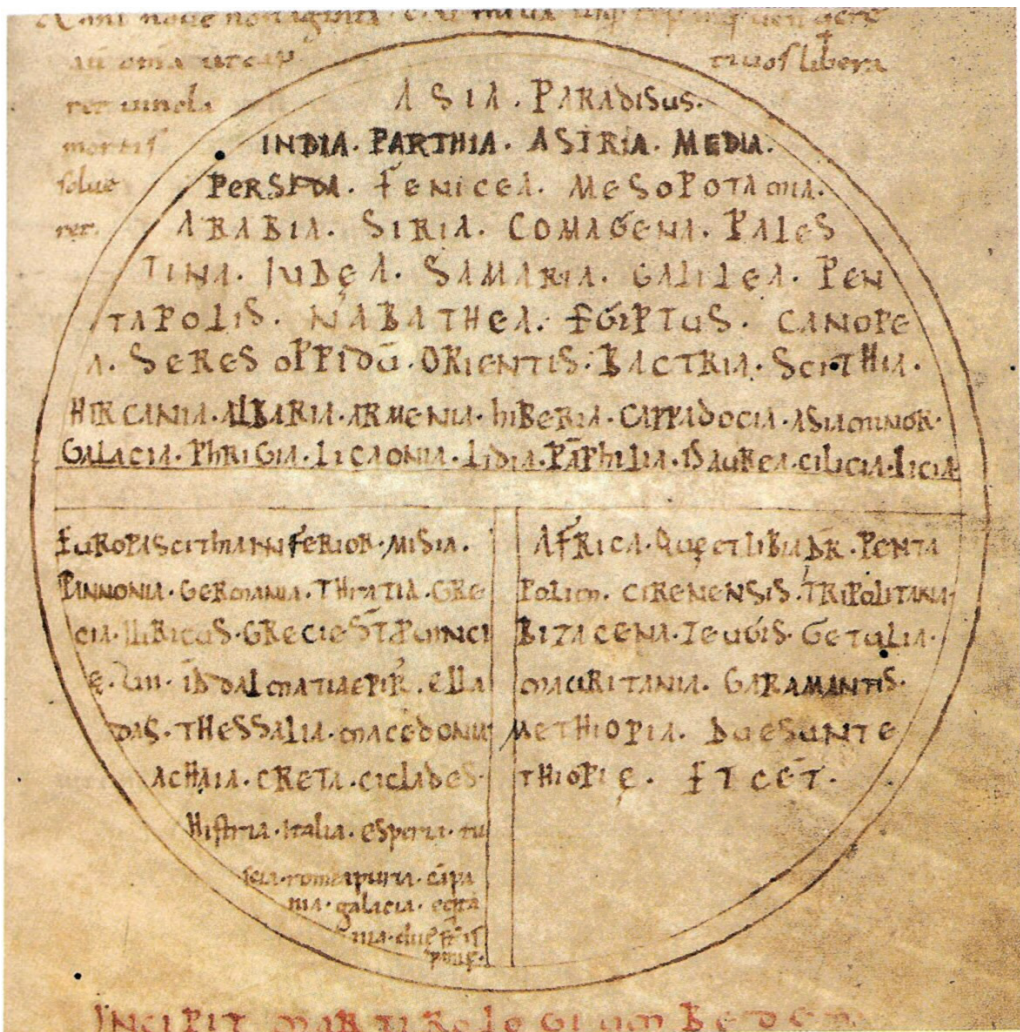 ASIA. PARAdISuS.
INDIA. PARTHIA. ASIRIA. MEDIA.
PERSIDA. FENICEA. MESOPOTAmIA.
ARABIA. SIRIA. COMAGENA. PALES
TINA. IUDęA. SAMARIA. GALILEA. PEN
TAPOLIS. NABATHEA. EGIPTUS. CANOPE
A. SERES OPPIDŪ. ORIENTIS. BACTRIA. SCITHIA.
HIRCANIA. ALBARIA. ARMENIA. hIBERIA. CAPPADOCIA. ASIAmINOR.
GALACIA. PhRIGIA. LICAONIA. LIDIA. PĀPhILIA. ISAUREA. CILICIA. LICIA
EUROPA SCIThIA INFERIOR. MISIA.
PINNONIA. GERmANIA. GRE
CIA. ILIRICUS. GRECIE
DALmATIA EPIR. ELLA
DAS. THESSALIA. mACEDONIA
ACHAIA. CRETA. CICLADES.
HISTRIA. ITALIA. ESPERIA. TU
SCIA.
NIA. GALACIA.
AFRICA. QUę EST LIBIA. PENTA
POLIm. CIRENENSIS. TRIPOLITANA.
BITACENA. ZEUGIS. GETULIA.
mAURITANIA. GARAMANTIS.
METHIOPIA. DUE SUNT E
THIOPIę. ET CĒT.
tivos libera
mortis
solve
ret.
INCIPIT MARTIROLOGIUM